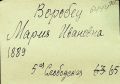 Воробей
Мария Ивановна
1889
5ая Слободская 63 65